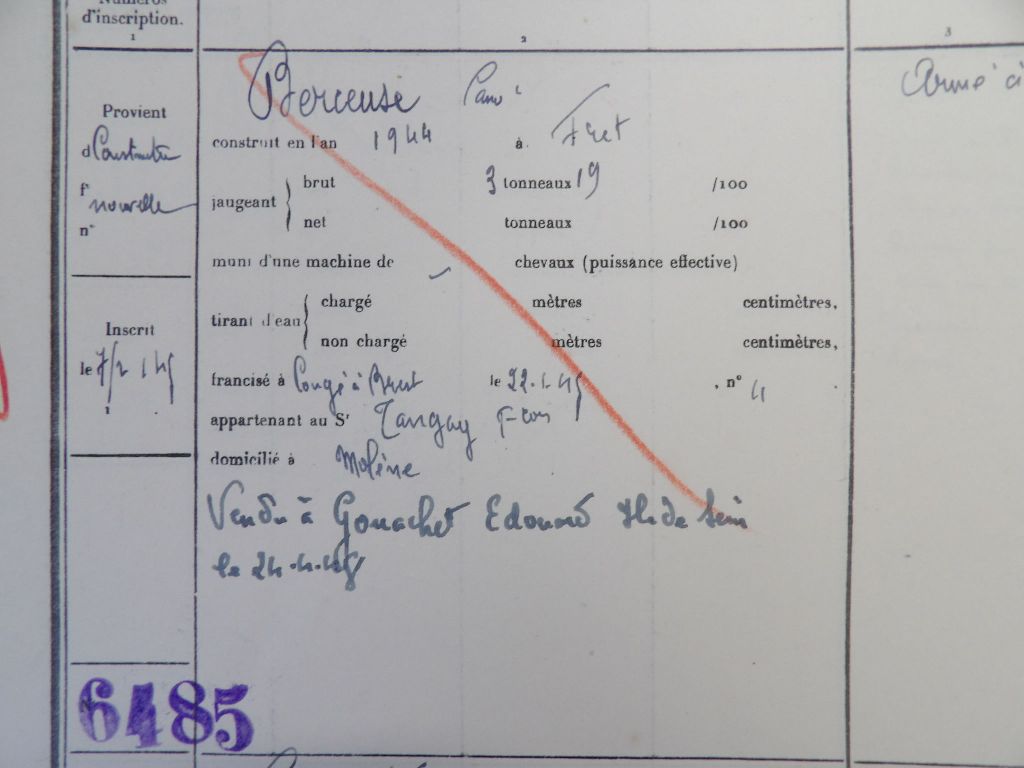 Numéros
d'inscription.
1
2
3
Berceuse Cano
Armé
Provient
d Construction
fr nouvelle
n°
construit en l'an 1944 à Fret
jaugeant
brut 3 tonneaux 19 /100
net tonneaux /100
muni d'une machine de chevaux (puissance effective)
tirant d'eau
chargé mètres centimètres,
non chargé mètres centimètres,
Inscrit
le 7/2 45
1
francisé à Congé à Brest le 22.1.45, n° 4
appartenant au Sr Tanguy Fcois
domicilié à Molène
Vendu à Gouachet Edouard Ile de Sein
le 24.4.48
6485